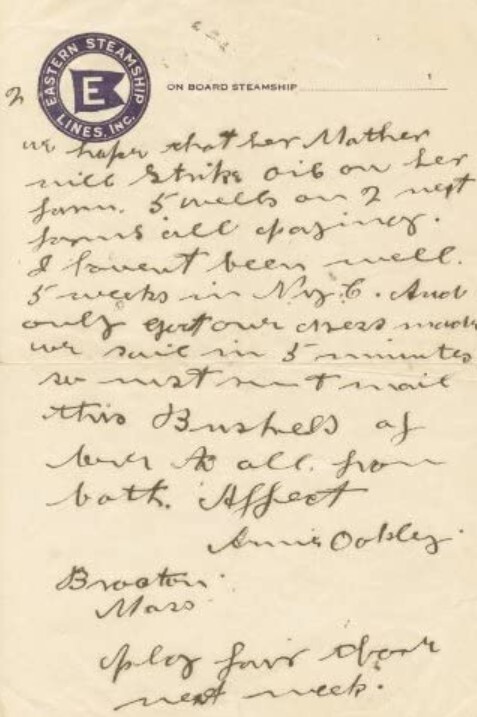 EASTERN STEAMSHIP
LINES, INC.
E
ON BOARD STEAMSHIP
2
we hope that her Mother
will Strike oil on her
farm. 5 wells on 2 next
farms all paying.
I havent been well.
5 weeks in N.Y.C. And
only got our dress made
we sail in 5 minutes
so must mail
this Bushels of
love to all. from
both. Affect
Annie Oakley.
Brocton.
Mass
play fair there
next week.